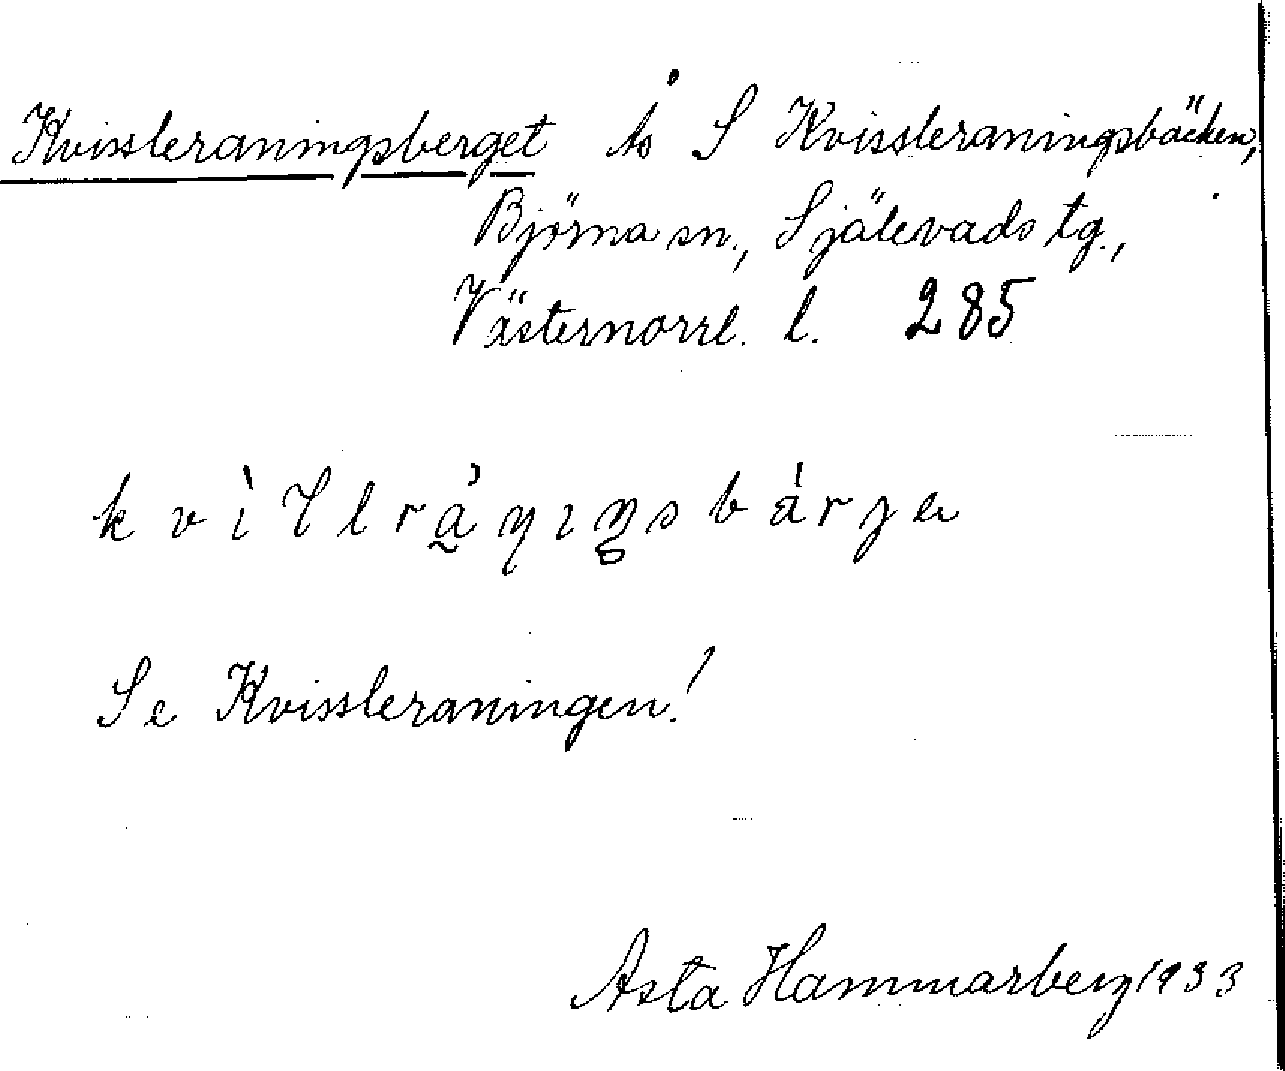 Kvissleraningsberget Ås S Kvissleraningsbäcken,
Björna sn., Själevads tg.,
Västernorrl. l. 285
Se Kvissleraningen!
Asta Hammarberg 1933